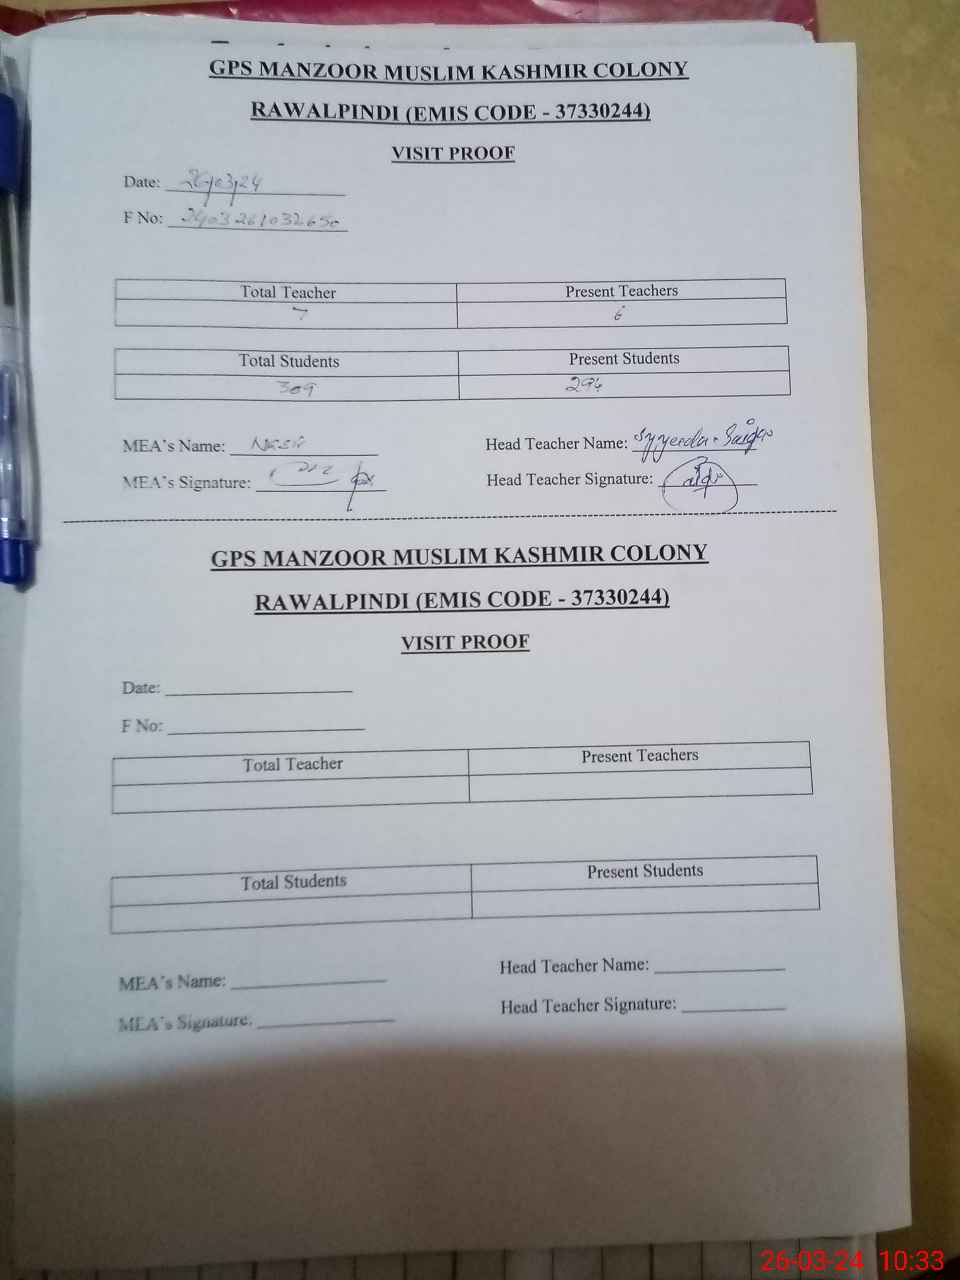 GPS MANZOOR MUSLIM KASHMIR COLONY
RAWALPINDI (EMIS CODE - 37330244)
VISIT PROOF
Date: 26/03/24
F No: 2403261032650
Total Teacher Present Teachers
7 6
Total Students Present Students
309 294
MEA's Name: Head Teacher Name: Syyeeda
MEA's Signature: Head Teacher Signature:
GPS MANZOOR MUSLIM KASHMIR COLONY
RAWALPINDI (EMIS CODE - 37330244)
VISIT PROOF
Date:
F No:
Total Teacher Present Teachers
Total Students Present Students
MEA's Name: Head Teacher Name:
MEA's Signature: Head Teacher Signature:
26-03-24 10:33